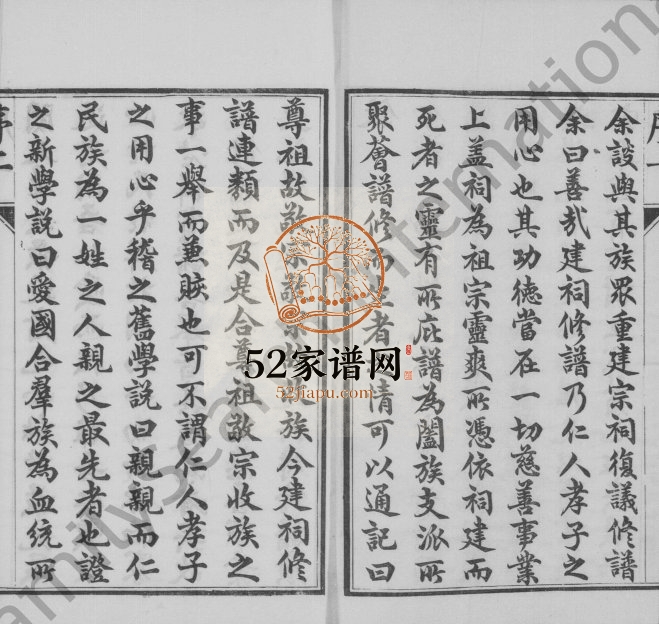 余設與其族眾重建宗祠復議修譜
余曰善哉建祠修譜乃仁人孝子之
用心也其功德當在一切慈善事業
上蓋祠為祖宗靈爽所憑依祠建而
死者之靈有所庇譜為闔族支派所
聚薈譜修而生者之情可以通記曰
尊祖故敬宗敬宗故收族今建祠修
譜連類而及是合尊祖敬宗收族之
事一舉而兼賅也可不謂仁人孝子
之用心乎稽之舊學說曰親親而仁
民族為一姓之人親之最先者也證
之新學說曰愛國合羣族為血統所
序二
52家谱网
52jiapu.com
FamilySearch International